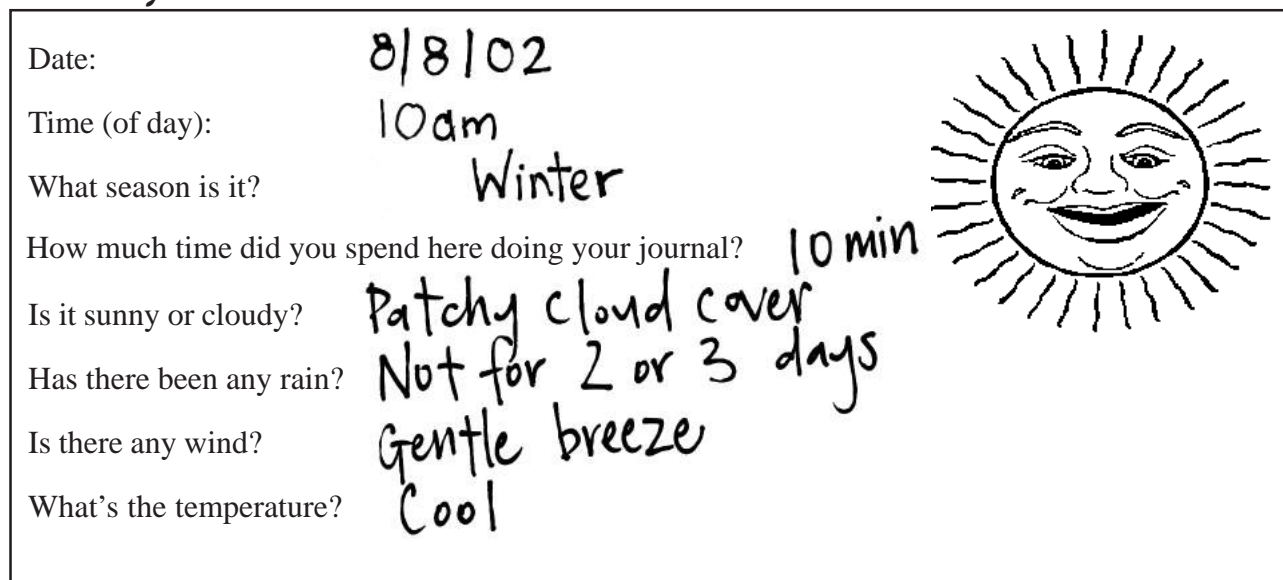 Date: 8/8/02
Time (of day): 10am
What season is it? Winter
How much time did you spend here doing your journal? 10 min
Is it sunny or cloudy? Patchy cloud cover
Has there been any rain? Not for 2 or 3 days
Is there any wind? Gentle breeze
What's the temperature? Cool